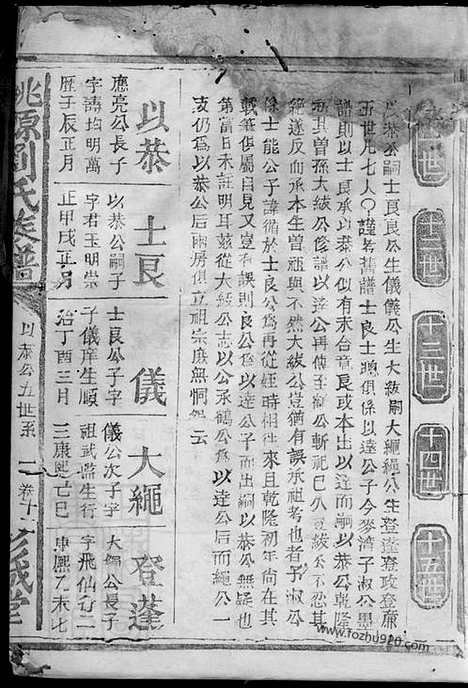 十二世
十三世
十四世
十五世
以恭公嗣士良良公生儀儀公生大紱嗣大繩繩公生登蓬登攻登廉
五世凡七人〇謹考舊譜士良士聰俱係以達公子今麥濟子淑公墨
譜則以士良承以恭公似有未合意良或本出以達而嗣以恭公乾隆
派其曾孫大紱公修譜以達公再傳至子繩公斬祀已久豈紱公不忍
絕遂反而承本生曾祖與不然大紱公豈猶有誤承祖考也者子淑公
係士能公子諱循於士良公為再從姪時相往來且乾隆初年尚在其
載筆俱屬目見豈復有誤則良公以達公子而出嗣以恭公無疑也
第當日未註明耳茲從大紱公志以公承鶴公為以達公后而繩公一
支仍為以恭公后兩房俱立祖宗庶無恫怨云
以恭
應亮公長子
字譸均明萬
歷子辰正月
士良
以恭公嗣子
字君玉明崇
正甲戌正月
儀
士良公子字
子儀庠生順
治丁酉三月
大繩
儀公次子字
祖武監生行
三康熙己巳
登蓬
大繩公長子
字飛仙行二
康熙乙未七
桃源劉氏族譜
以恭公五世系
一
卷十
彭城堂
www.fozhu920.com